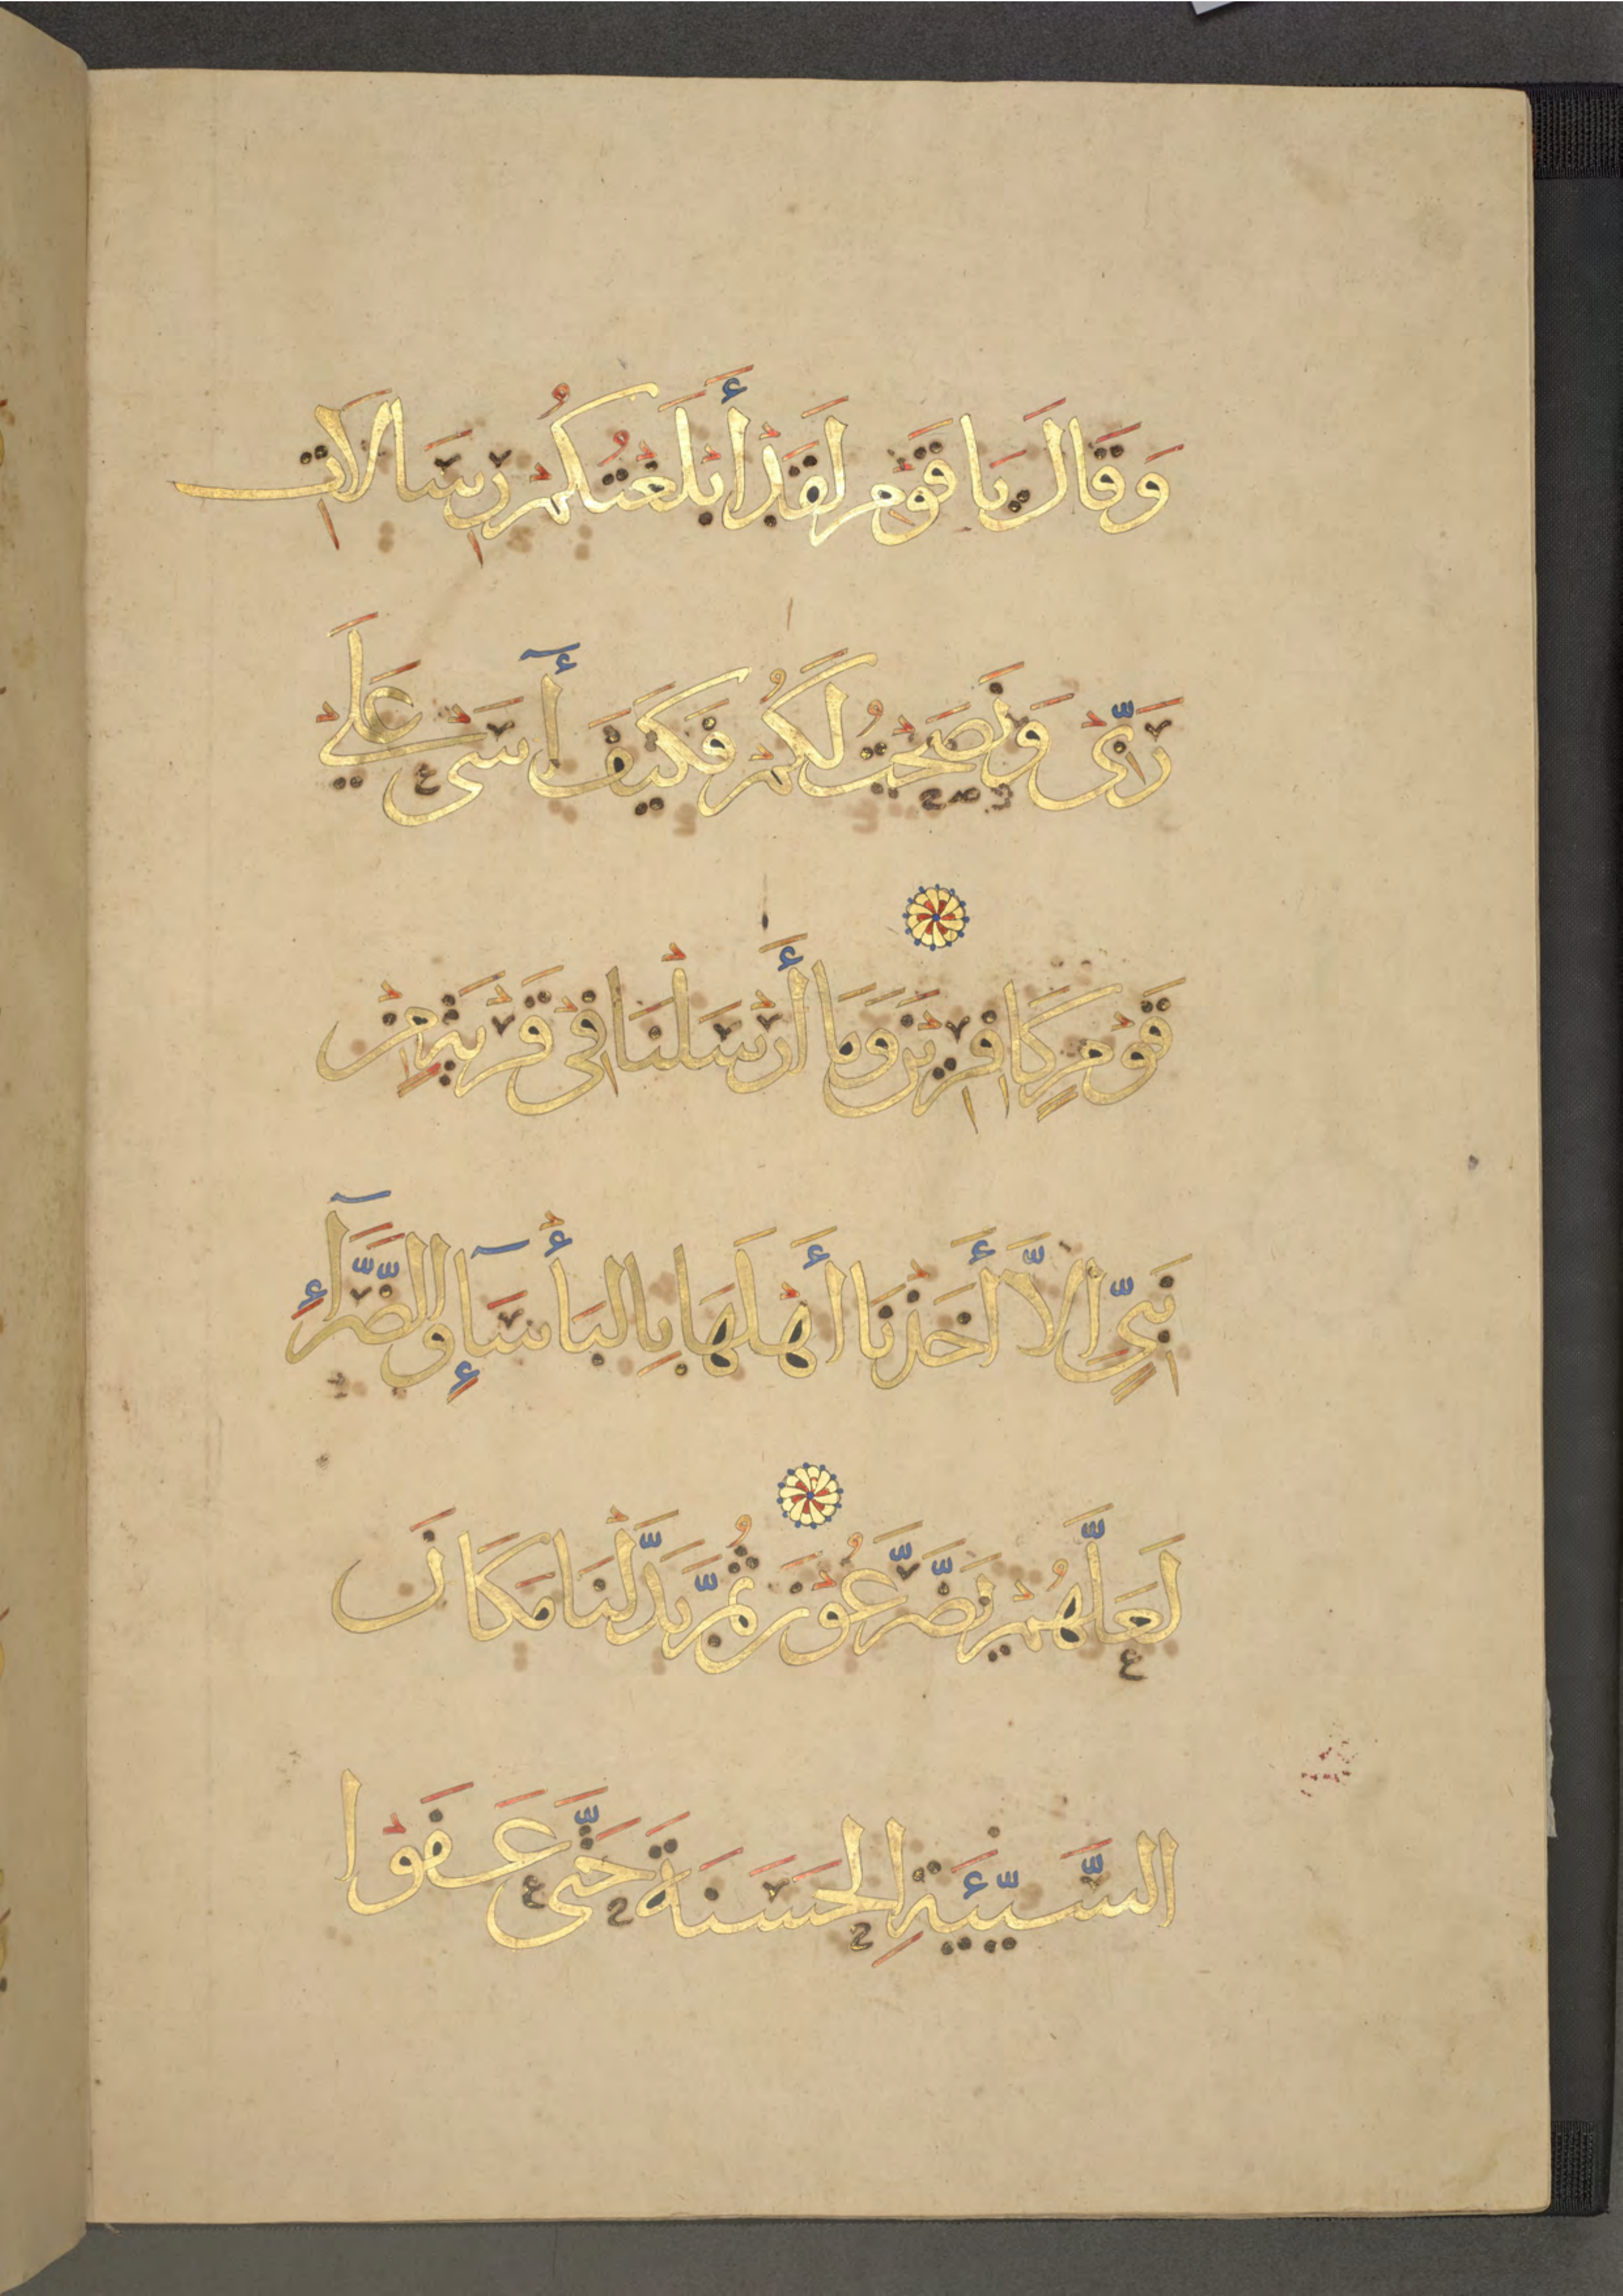 وَقَالَ يَا قَوْمِ لَقَدْ أَبْلَغْتُكُمْ رِسَالَاتِ
رَبِّي وَنَصَحْتُ لَكُمْ فَكَيْفَ آسَى عَلَى
قَوْمٍ كَافِرِينَ وَمَا أَرْسَلْنَا فِي قَرْيَةٍ مِنْ
نَبِيٍّ إِلَّا أَخَذْنَا أَهْلَهَا بِالبَأْسَآءِ وَالضَّرَّآءِ
لَعَلَّهُمْ يَضَّرَّعُونَ ثُمَّ بَدَّلْنَا مَكَانَ
السَّيِّئَةِ الحَسَنَةَ حَتَّى عَفَوْا